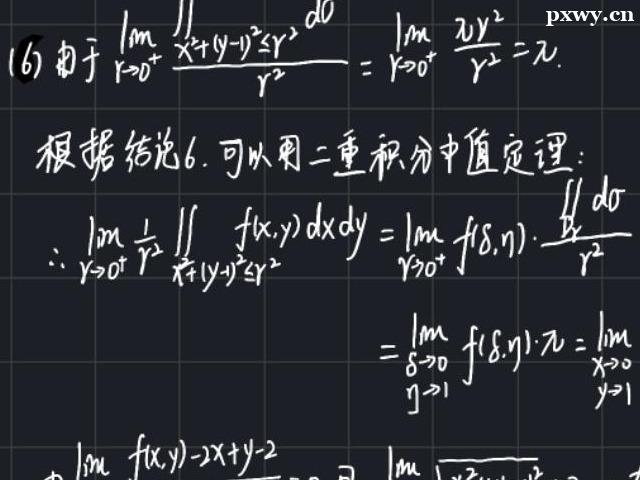 pxwy.cn
(6) 由于 lim_{r→0⁺} ∬_{x²+(y-1)²≤r²} dσ / r² = lim_{r→0⁺} πr²/r² = π.
根据结论6. 可以用二重积分中值定理:
∴ lim_{r→0⁺} 1/r² ∬_{x²+(y-1)²≤r²} f(x,y) dxdy = lim_{r→0⁺} f(δ,η)· ∬_{Dr} dσ / r²
= lim_{δ→0 η→1} f(δ,η)·π = lim_{x→0 y→1}
lim f(x,y)-2x+y-2